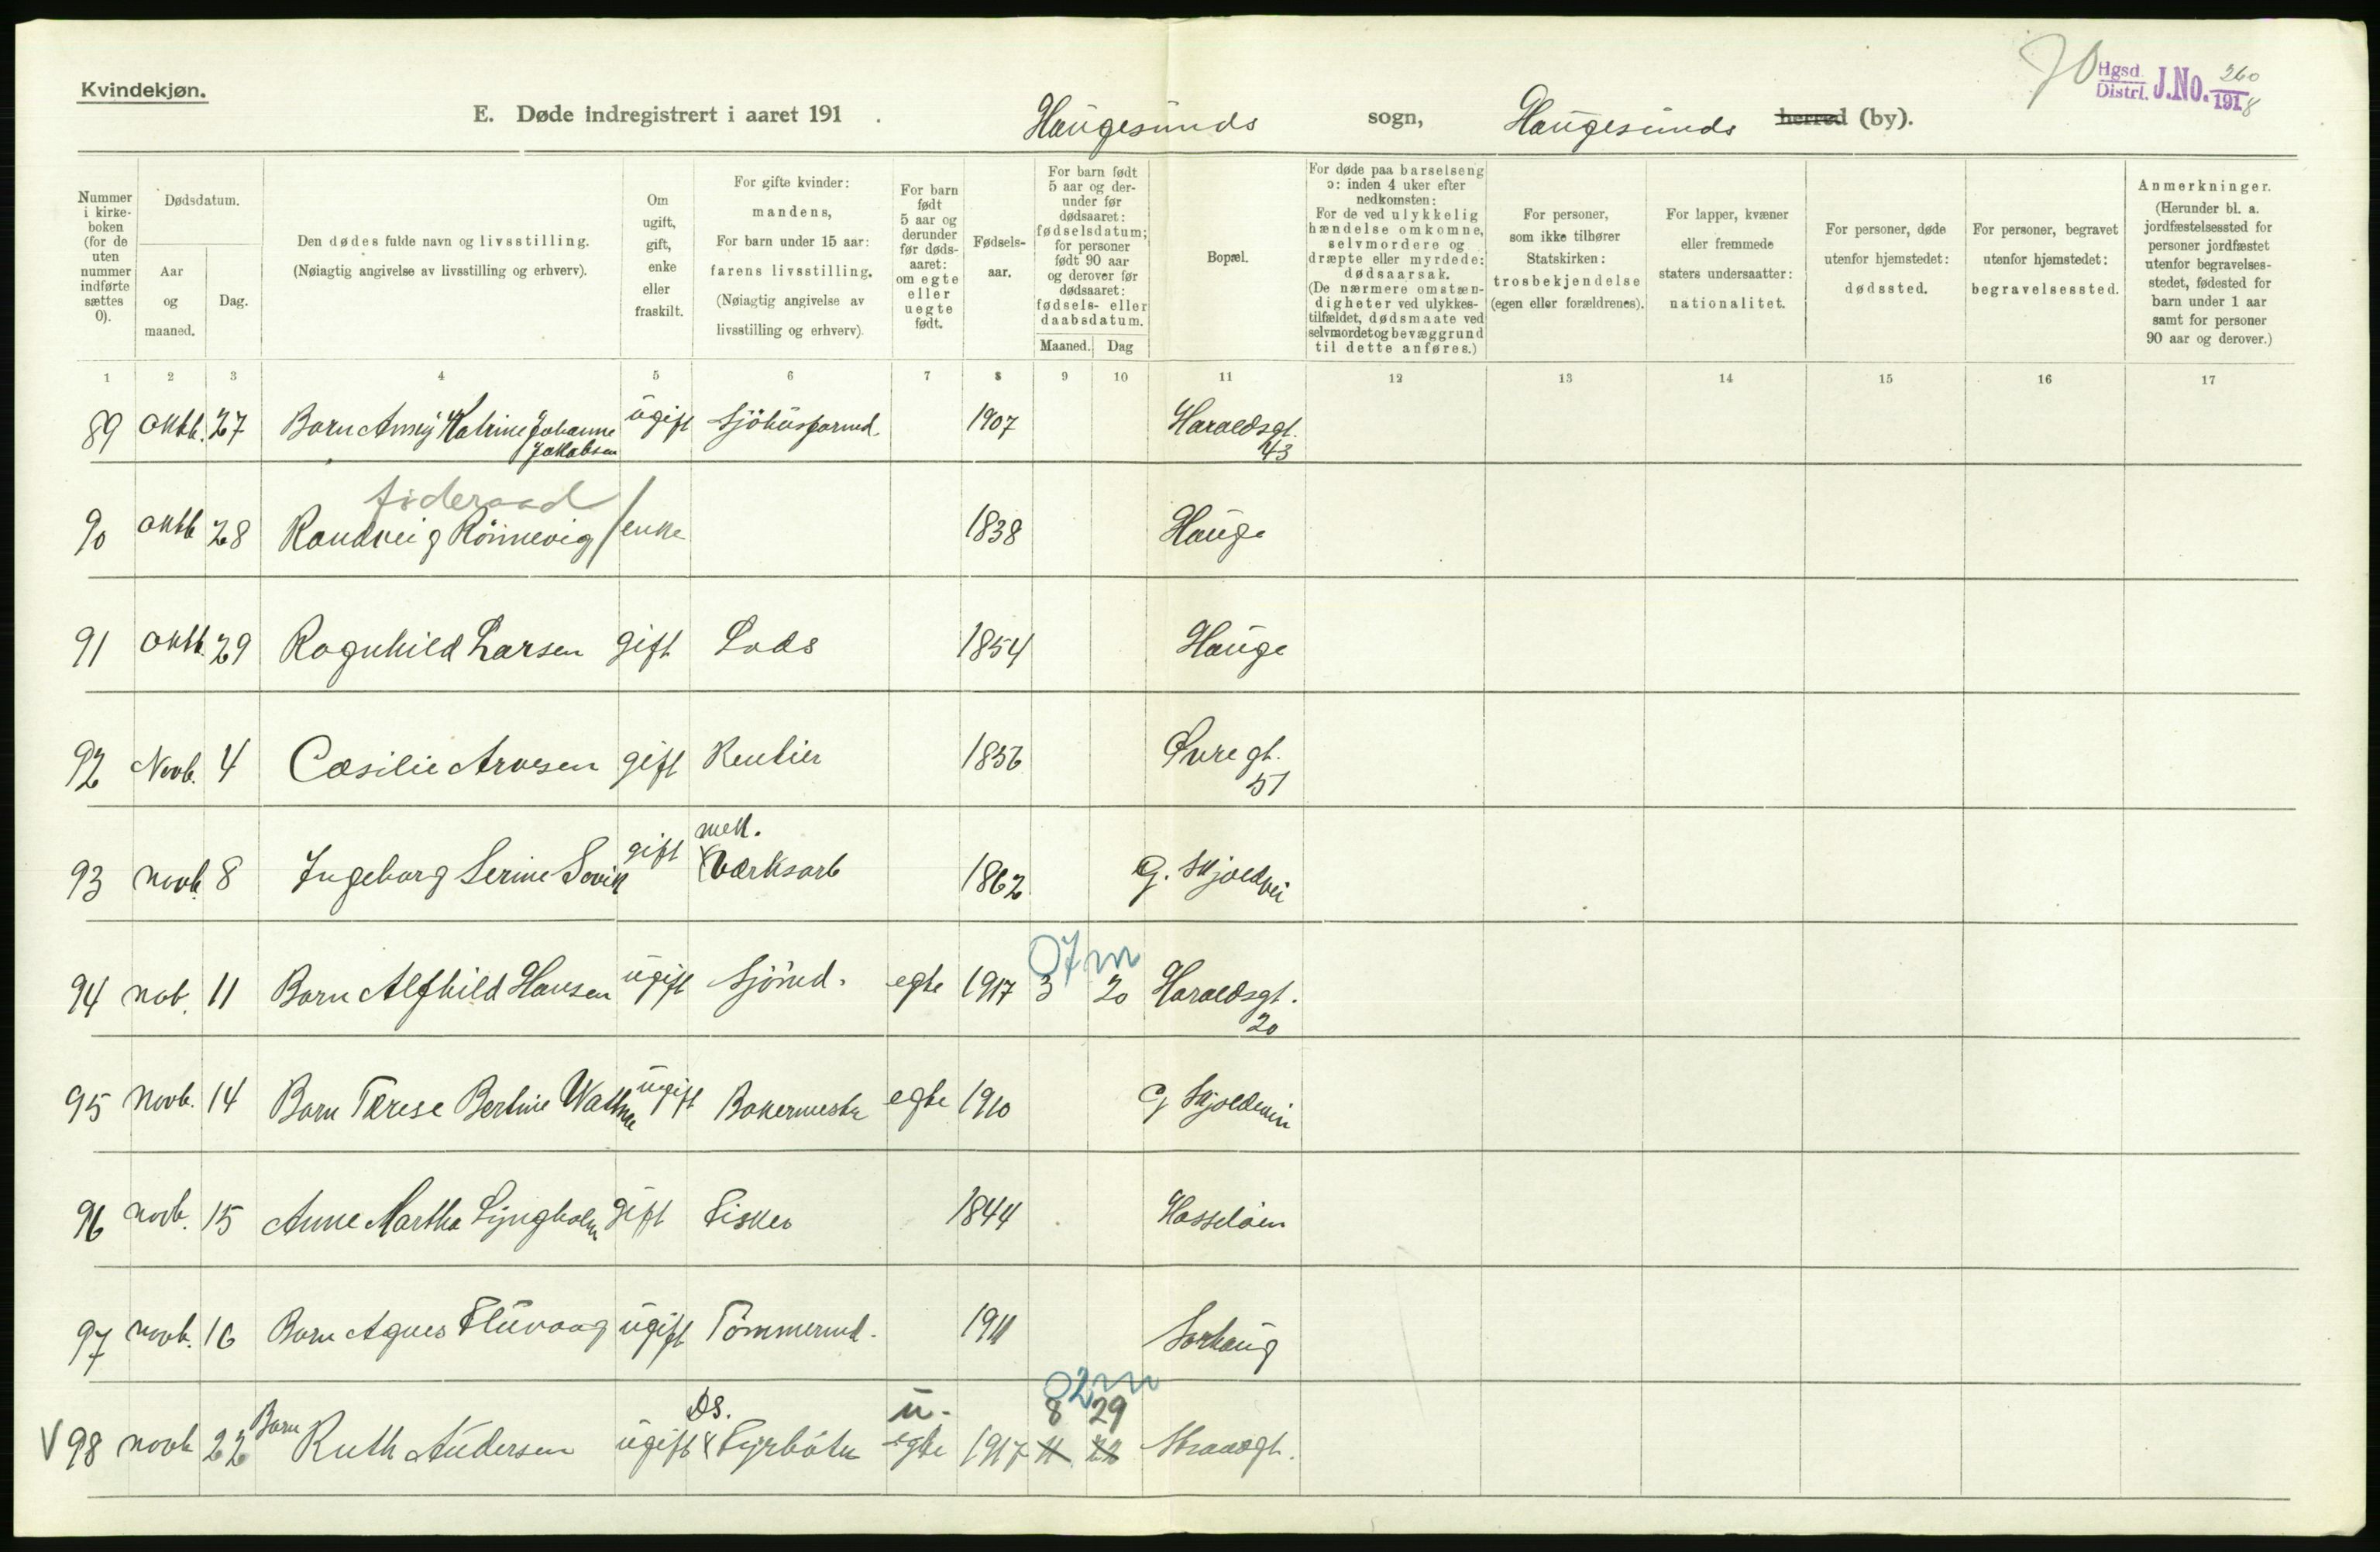 Kvindekjøn.
70
Hgsd. Distri. J.No. 260 1918
E. Døde indregistrert i aaret 191 . Haugesunds sogn, Haugesunds herred (by).
Nummer i kirke- boken (for de uten nummer indførte sættes 0).
Dødsdatum.
Aar og maaned.
Dag.
Den dødes fulde navn og livsstilling.
(Nøiagtig angivelse av livsstilling og erhverv).
Om ugift, gift, enke eller fraskilt.
For gifte kvinder: mandens, For barn under 15 aar: farens livsstilling. (Nøiagtig angivelse av livsstilling og erhverv).
For barn født 5 aar og derunder før døds- aaret: om egte eller uegte født.
Fødsels- aar.
For barn født 5 aar og der- under før dødsaaret: fødselsdatum; for personer født 90 aar og derover før dødsaaret: fødsels- eller daabsdatum.
Maaned. Dag
Bopæl.
For døde paa barselseng ɔ: inden 4 uker efter nedkomsten: For de ved ulykkelig hændelse omkomne, selvmordere og dræpte eller myrdede: dødsaarsak. (De nærmere omstæn- digheter ved ulykkes- tilfældet, dødsmaate ved selvmordet og bevæggrund til dette anføres.)
For personer, som ikke tilhører Statskirken: trosbekjendelse (egen eller forældrenes).
For lapper, kvæner eller fremmede staters undersaatter: nationalitet.
For personer, døde utenfor hjemstedet: dødssted.
For personer, begravet utenfor hjemstedet: begravelsessted.
Anmerkninger. (Herunder bl. a. jordfæstelsessted for personer jordfæstet utenfor begravelses- stedet, fødested for barn under 1 aar samt for personer 90 aar og derover.)
1 2 3 4 5 6 7 8 9 10 11 12 13 14 15 16 17
89 oktb. 27 Barn Anny Katrine Johanne Jakobsen ugift Sjöhusformd. 1907 Haraldsgt. 43
föderaad
90 oktb 28 Randveig Rönnevig / enke 1838 Hauge
91 oktb. 29 Ragnhild Larsen gift Lods 1854 Hauge
92 Novb. 4 Cæsilie Arvesen gift Rentier 1836 Øvregt. 51
93 novb. 8 Ingeborg Serine Sovik gift mek. Værksarb 1862 G. Skjoldvei
07m
94 nob. 11 Barn Alfhild Hansen ugift Sjömd. egte 1917 3 20 Haraldsgt. 20
95 Novb. 14 Barn Terese Bertine Wathne ugift Bakermester egte 1910 G Skjoldevei
96 novb. 15 Anne Martha Lyngholm gift Fisker 1844 Hasselöen
97 novb. 16 Barn Agnes Fluvaag ugift Tömmermd. 1911 Sorhaug
02m
V 98 novb 22 Barn Ruth Andersen ugift DS. Fyrböter u- egte 1917 8 29 11 22 Strandgt.